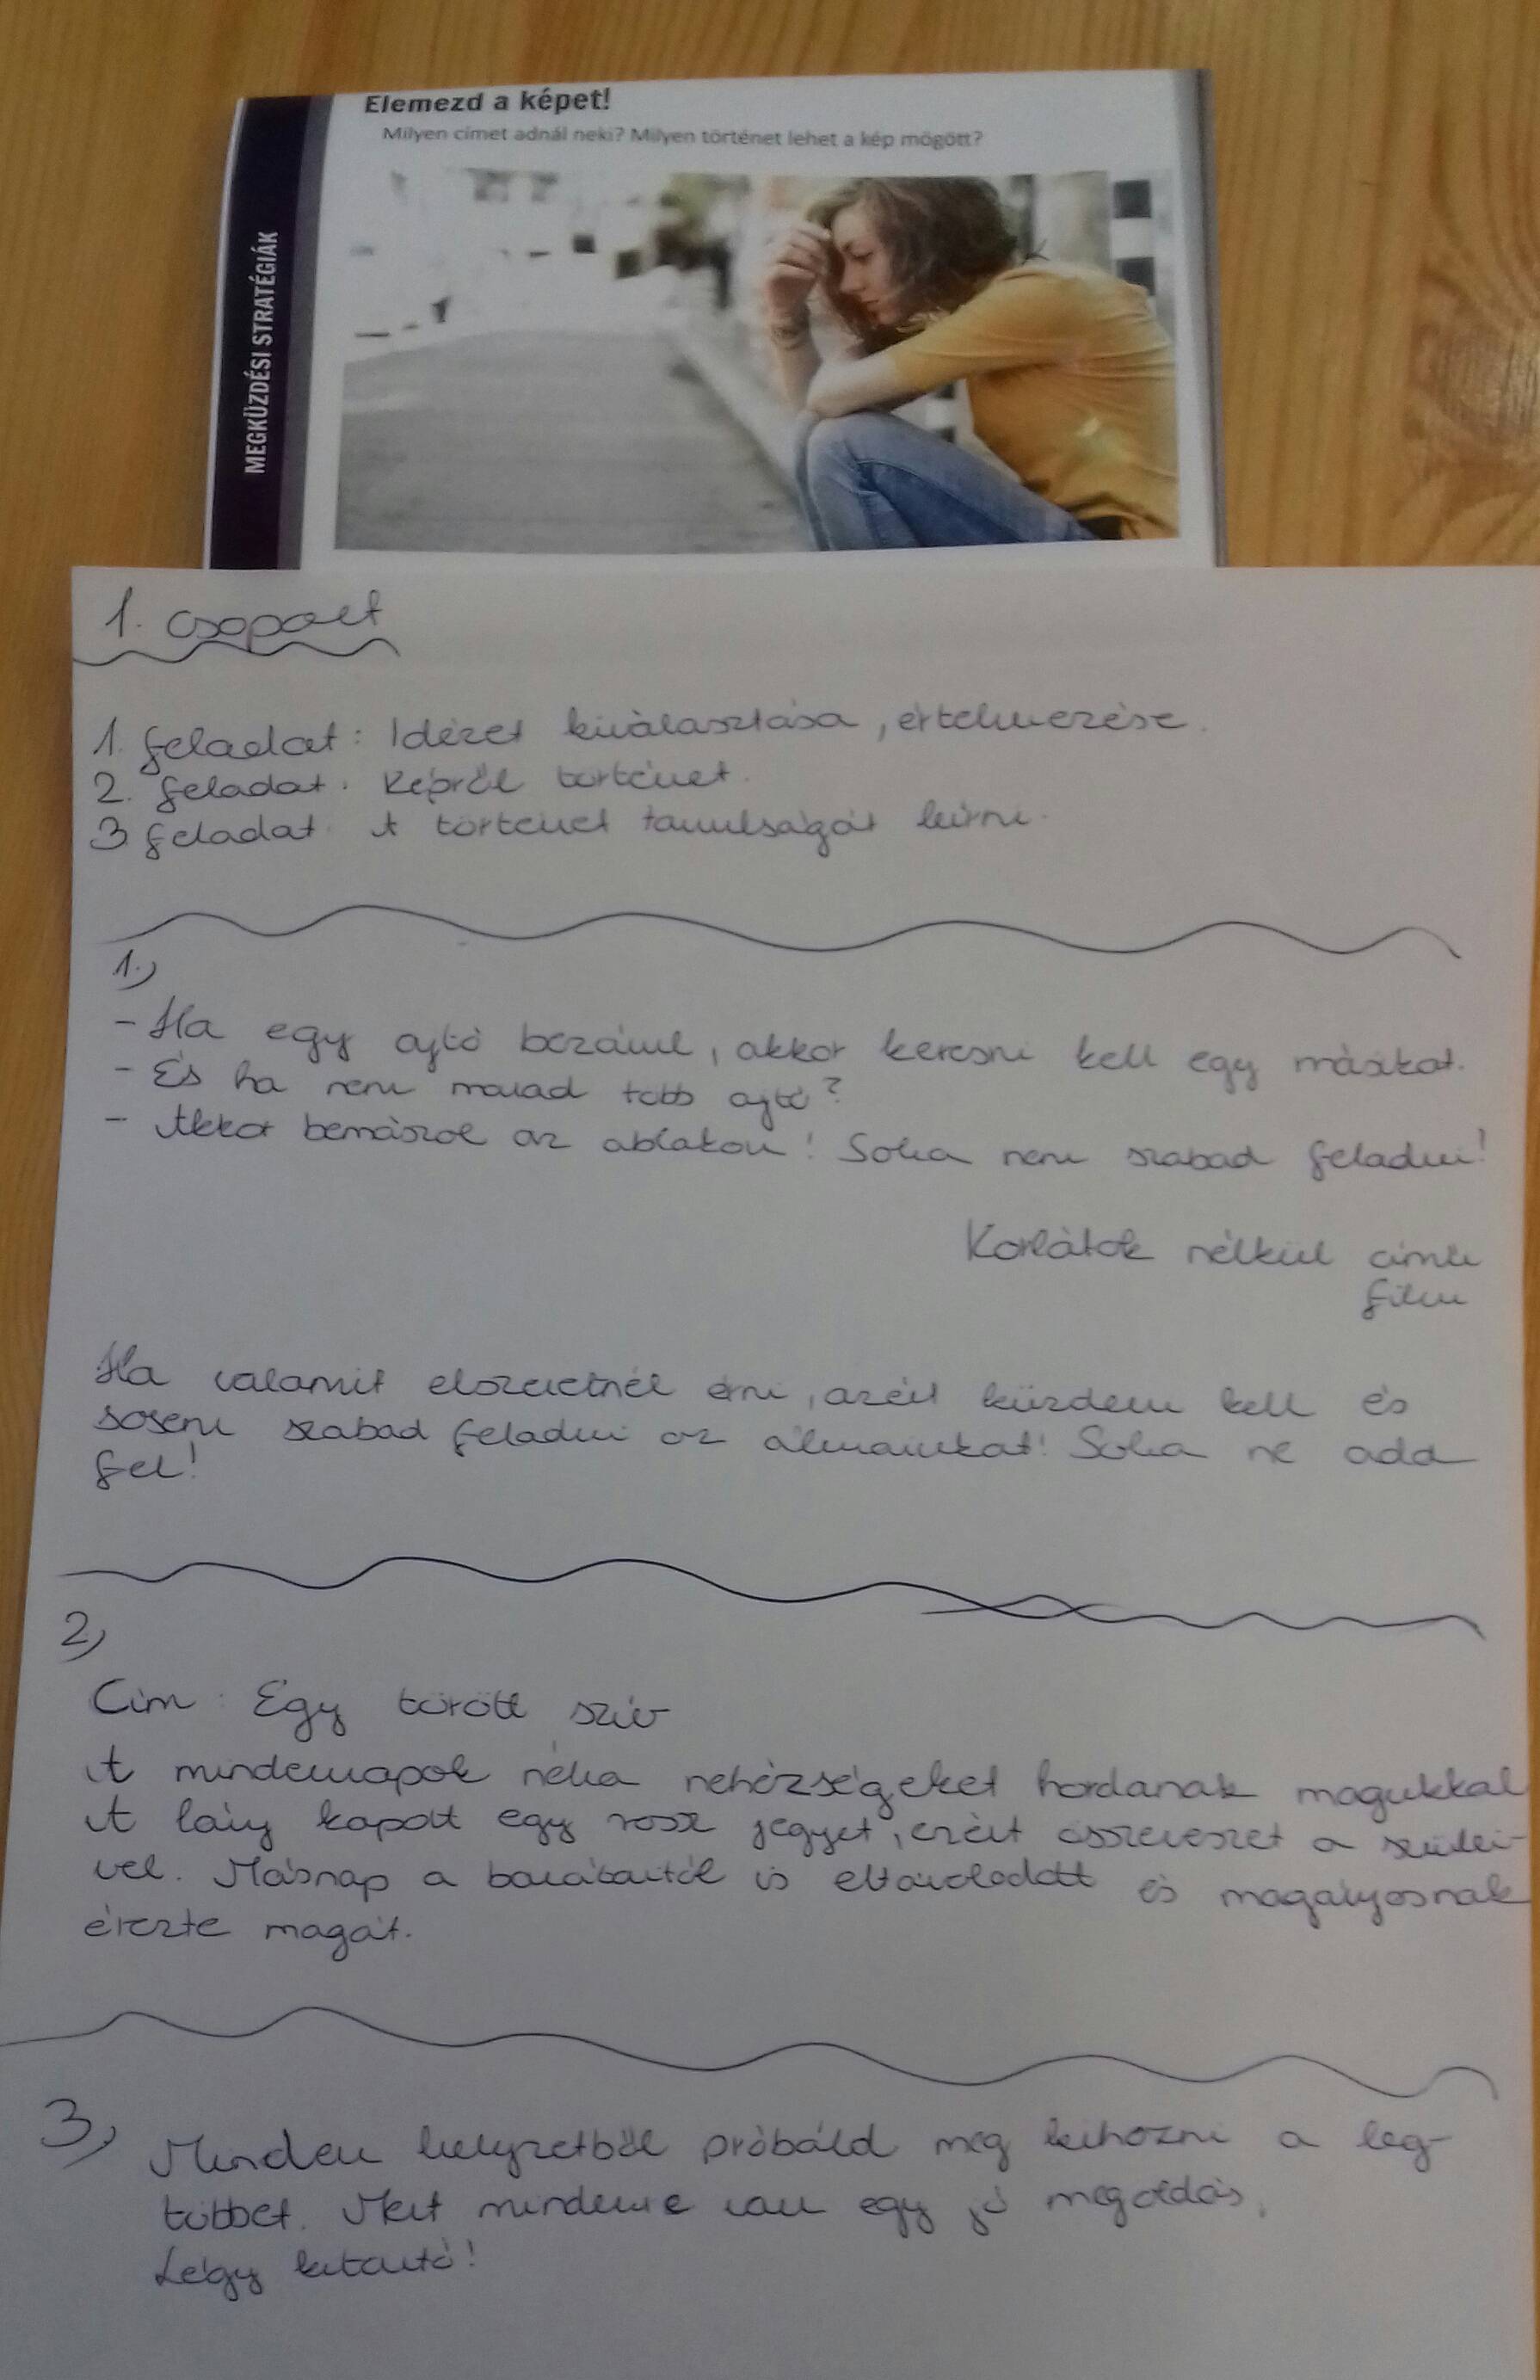 Elemezd a képet!
Milyen címet adnál neki? Milyen történet lehet a kép mögött?
MEGKÜZDÉSI STRATÉGIÁK
1. csoport
1. feladat: Idézet kiválasztása, értelmezése.
2. feladat: Képről történet.
3 feladat: A történet tanulságát leírni.
1.)
- Ha egy ajtó bezárul, akkor keresni kell egy másikat.
- És ha nem marad több ajtó?
- Akkor bemászol az ablakon! Soha nem szabad feladni!
Korlátok nélkül című
film
Ha valamit elszeretnél érni, azért küzdeni kell és
sosem szabad feladni az álmainkat! Soha ne add
fel!
2,
Cím: Egy törött szív
A mindennapok néha nehézségeket hordanak magukkal
A lány kapott egy rossz jegyet, ezért összeveszet a szülei-
vel. Másnap a barátaitól is eltávolodott és magányosnak
érezte magát.
3,
Minden helyzetből próbáld meg kihozni a leg-
többet. Mert mindenre van egy jó megoldás.
Légy kitartó!